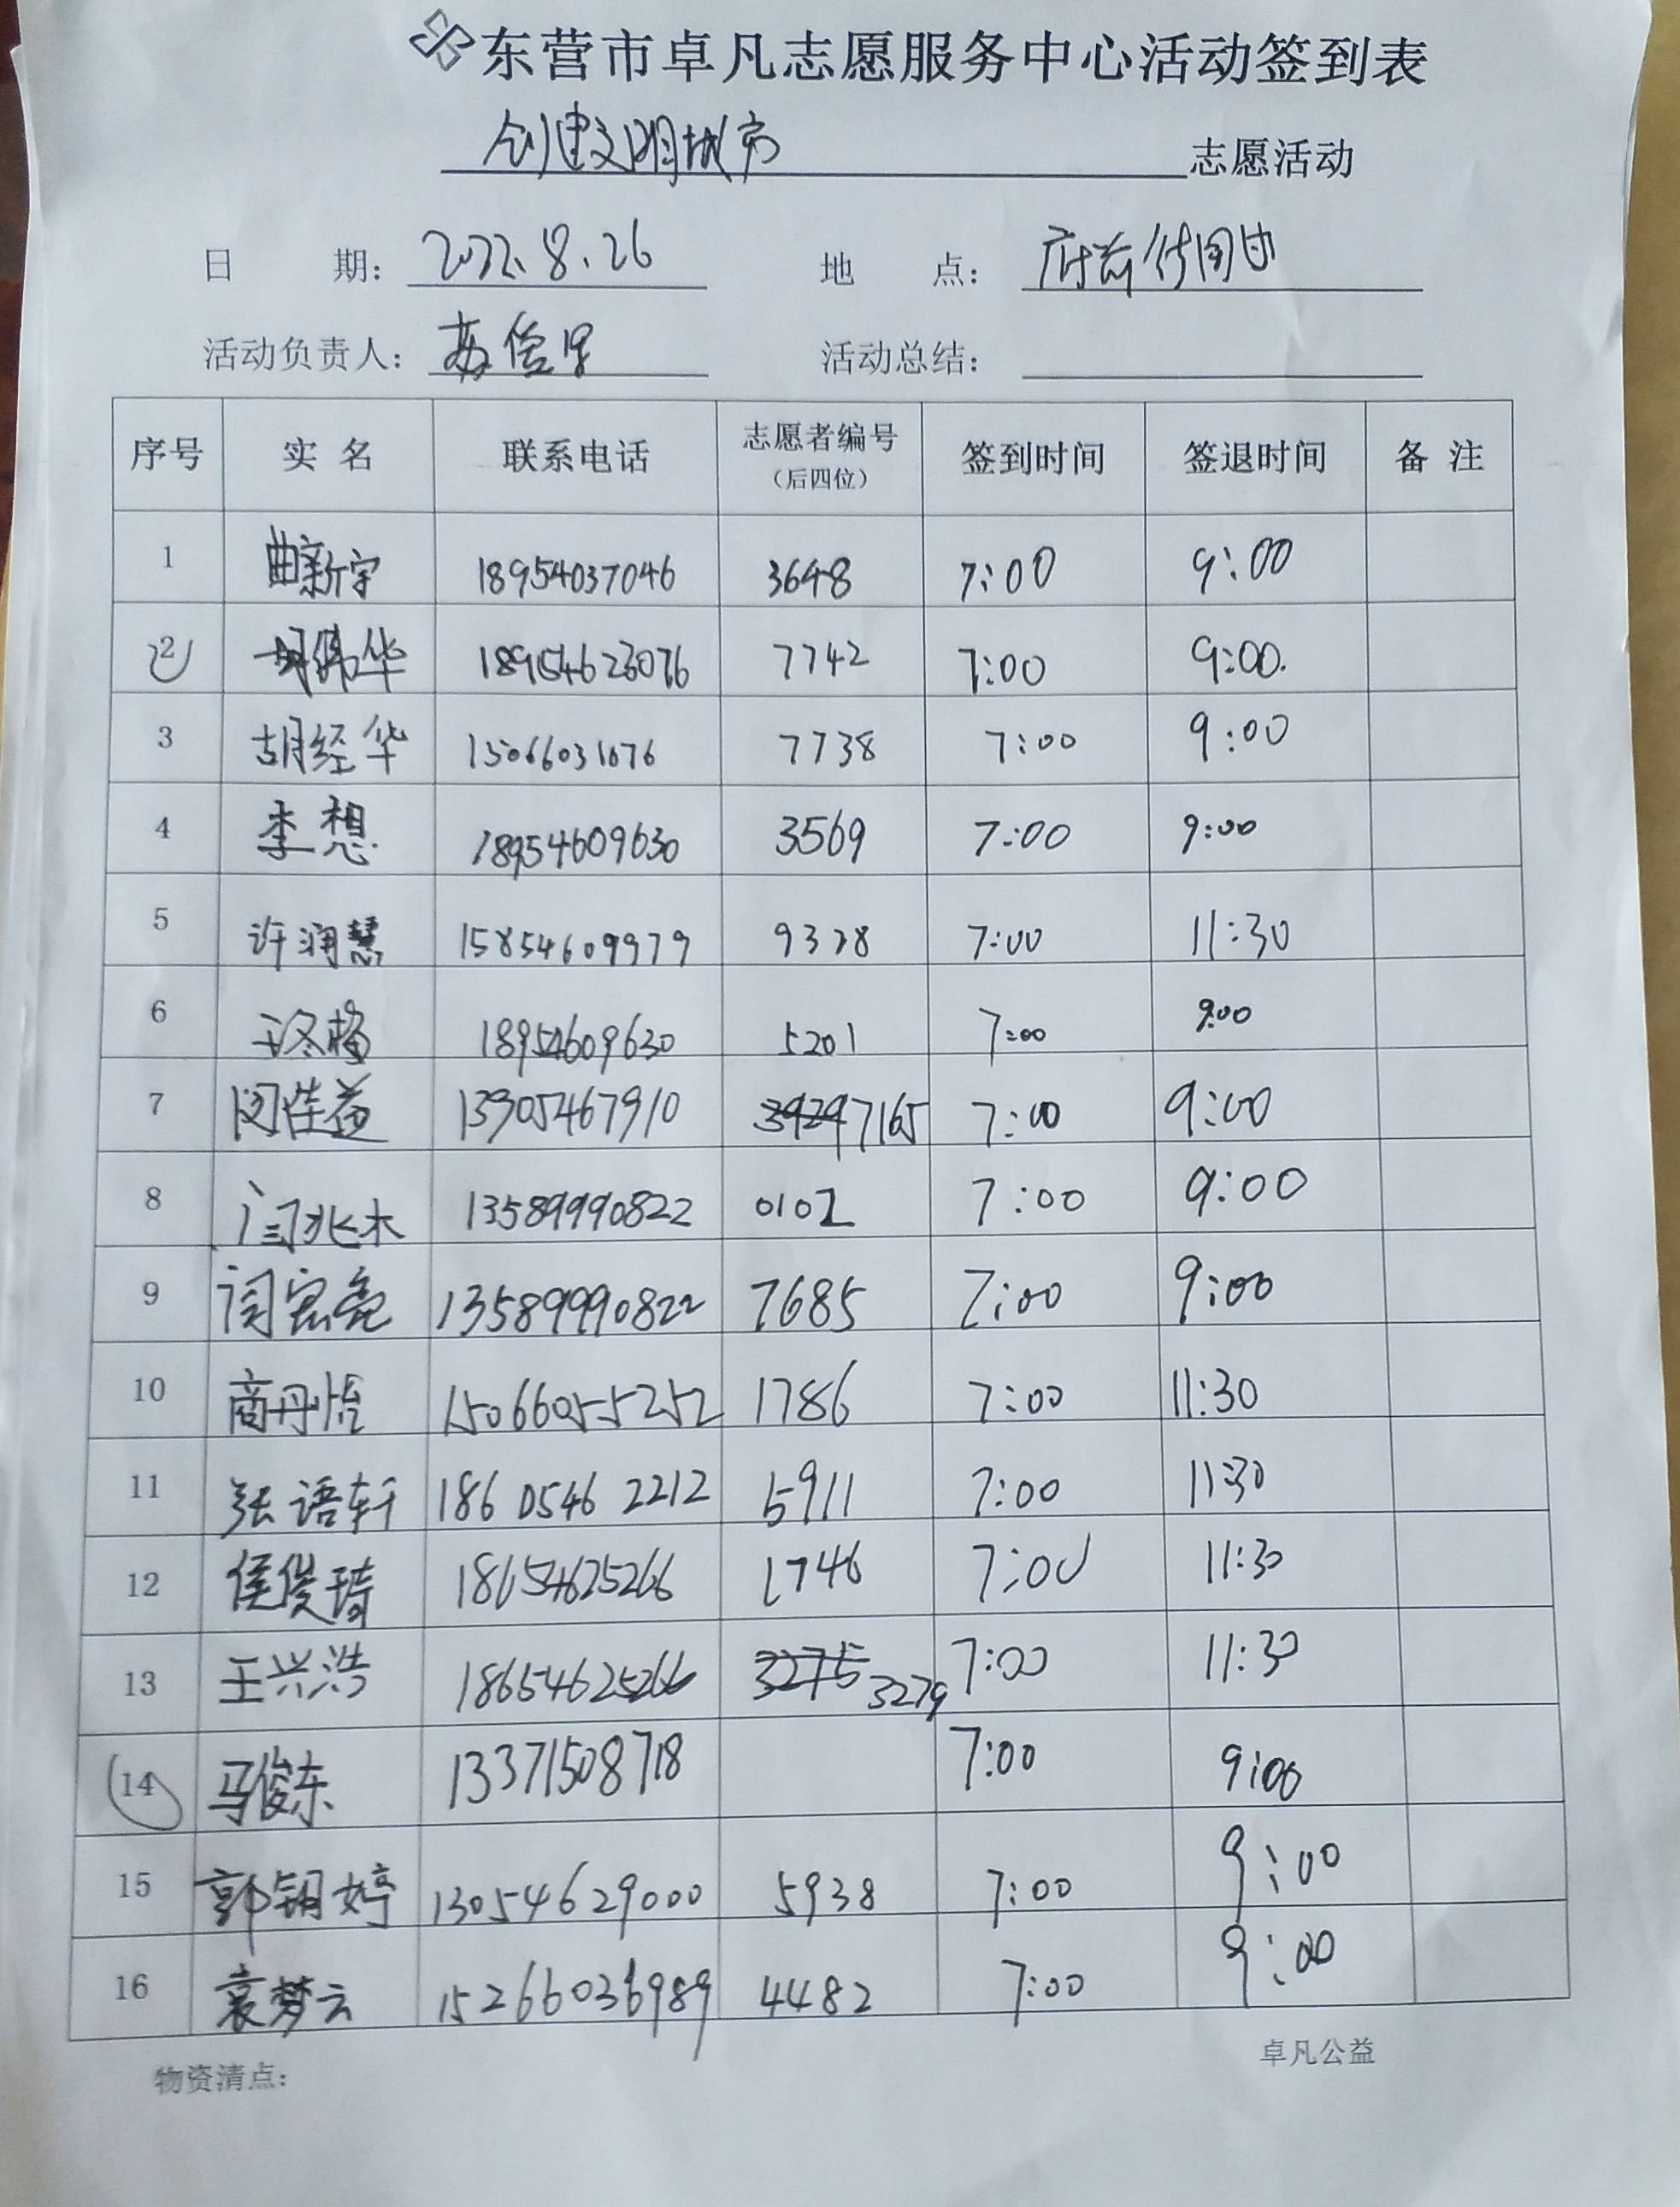 东营市卓凡志愿服务中心活动签到表
创建文明城市 志愿活动
日 期: 2022.8.26 地 点: 府前街周边
活动负责人: 活动总结:
序号 实 名 联系电话 志愿者编号(后四位) 签到时间 签退时间 备 注
1 曲新宇 18954037046 3648 7:00 9:00
2 胡伟华 18954623076 7742 7:00 9:00.
3 胡经华 15066031676 7738 7:00 9:00
4 李想 18954609630 3569 7:00 9:00
5 许润慧 15854609979 9328 7:00 11:30
6 王冬梅 18954609630 5201 7:00 9:00
7 闵佳益 13905467910 3929 7165 7:00 9:00
8 闫兆木 13589990822 0102 7:00 9:00
9 闫宏亮 13589990822 7685 7:00 9:00
10 商丹怡 15066055252 1786 7:00 11:30
11 张语轩 186 0546 2212 5911 7:00 11:30
12 侯俊琦 18654625266 1746 7:00 11:30
13 王兴浩 18654625266 3275 3279 7:00 11:30
14 马俊东 13371508718 7:00 9:00
15 郭钥婷 13054629000 5938 7:00 9:00
16 袁梦云 15266036989 4482 7:00 9:00
物资清点:
卓凡公益